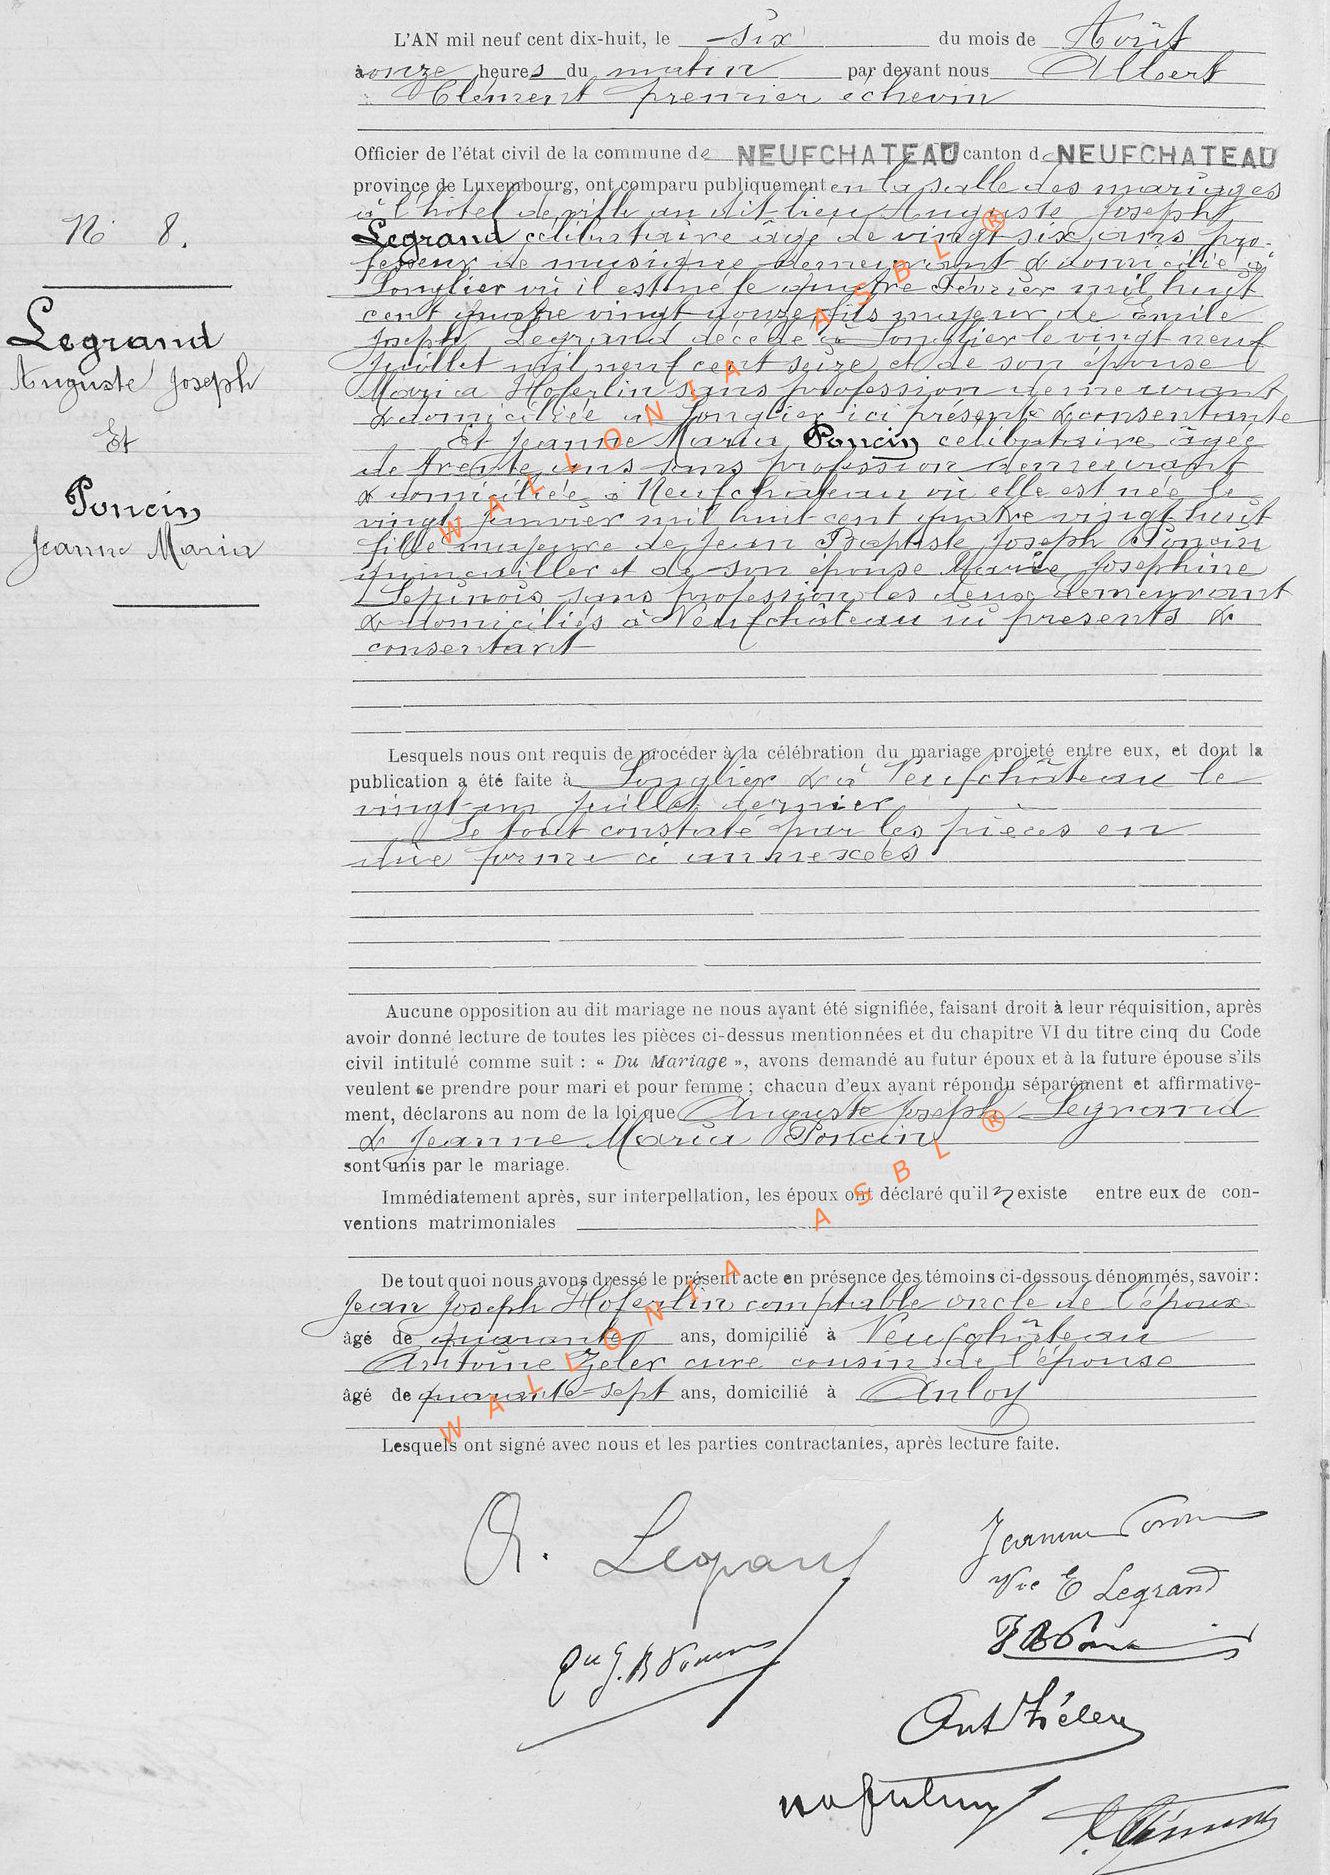 L'AN mil neuf cent dix-huit, le six du mois de Août
à onze heures du matin par devant nous Albert
Clément premier échevin
Officier de l'état civil de la commune de NEUFCHATEAU canton de NEUFCHATEAU
province de Luxembourg, ont comparu publiquement en la salle des mariages
à l'hôtel de ville au dit lieu Auguste Joseph
Legrand célibataire âgé de vingt six ans pro-
fesseur de musique demeurant & domicilié à
Longlier où il est né le quatre Février mil huit
cent quatre vingt douze fils majeur de Emile
Joseph Legrand décédé à Longlier le vingt neuf
juillet mil neuf cent seize et de son épouse
Maria Hoferlin sans profession demeurant
& domiciliée à Longlier ici présente & consentante
Et Jeanne Maria Poncin célibataire âgée
de trente ans sans profession demeurant
& domiciliée à Neufchâteau où elle est née le
vingt janvier mil huit cent quatre vingt huit
fille majeure de Jean Baptiste Joseph Poncin
quincailler et de son épouse Marie Josephine
Lepinois sans profession les deux demeurant
& domiciliés à Neufchâteau ici presents &
consentant
N° 8.
Legrand
Auguste Joseph
Et
Poncin
Jeanne Maria
Lesquels nous ont requis de procéder à la célébration du mariage projeté entre eux, et dont la
publication a été faite à Longlier & à Neufchâteau le
vingt-un juillet dernier
Le tout constaté par les pièces en
due forme ci annexées
Aucune opposition au dit mariage ne nous ayant été signifiée, faisant droit à leur réquisition, après
avoir donné lecture de toutes les pièces ci-dessus mentionnées et du chapitre VI du titre cinq du Code
civil intitulé comme suit : « Du Mariage », avons demandé au futur époux et à la future épouse s'ils
veulent se prendre pour mari et pour femme ; chacun d'eux ayant répondu séparément et affirmative-
ment, déclarons au nom de la loi que Auguste Joseph Legrand
& Jeanne Maria Poncin
sont unis par le mariage.
Immédiatement après, sur interpellation, les époux ont déclaré qu'il n'existe entre eux de con-
ventions matrimoniales
De tout quoi nous avons dressé le présent acte en présence des témoins ci-dessous dénommés, savoir :
Jean Joseph Hoferlin comptable oncle de l'époux
âgé de quarante ans, domicilié à Neufchâteau
Antoine Zeler curé cousin de l'épouse
âgé de quarante-sept ans, domicilié à Anloy
Lesquels ont signé avec nous et les parties contractantes, après lecture faite.
A. Legrand
Jeanne Poncin
Vve E Legrand
WALLONIA ASBL ®
WALLONIA ASBL ®